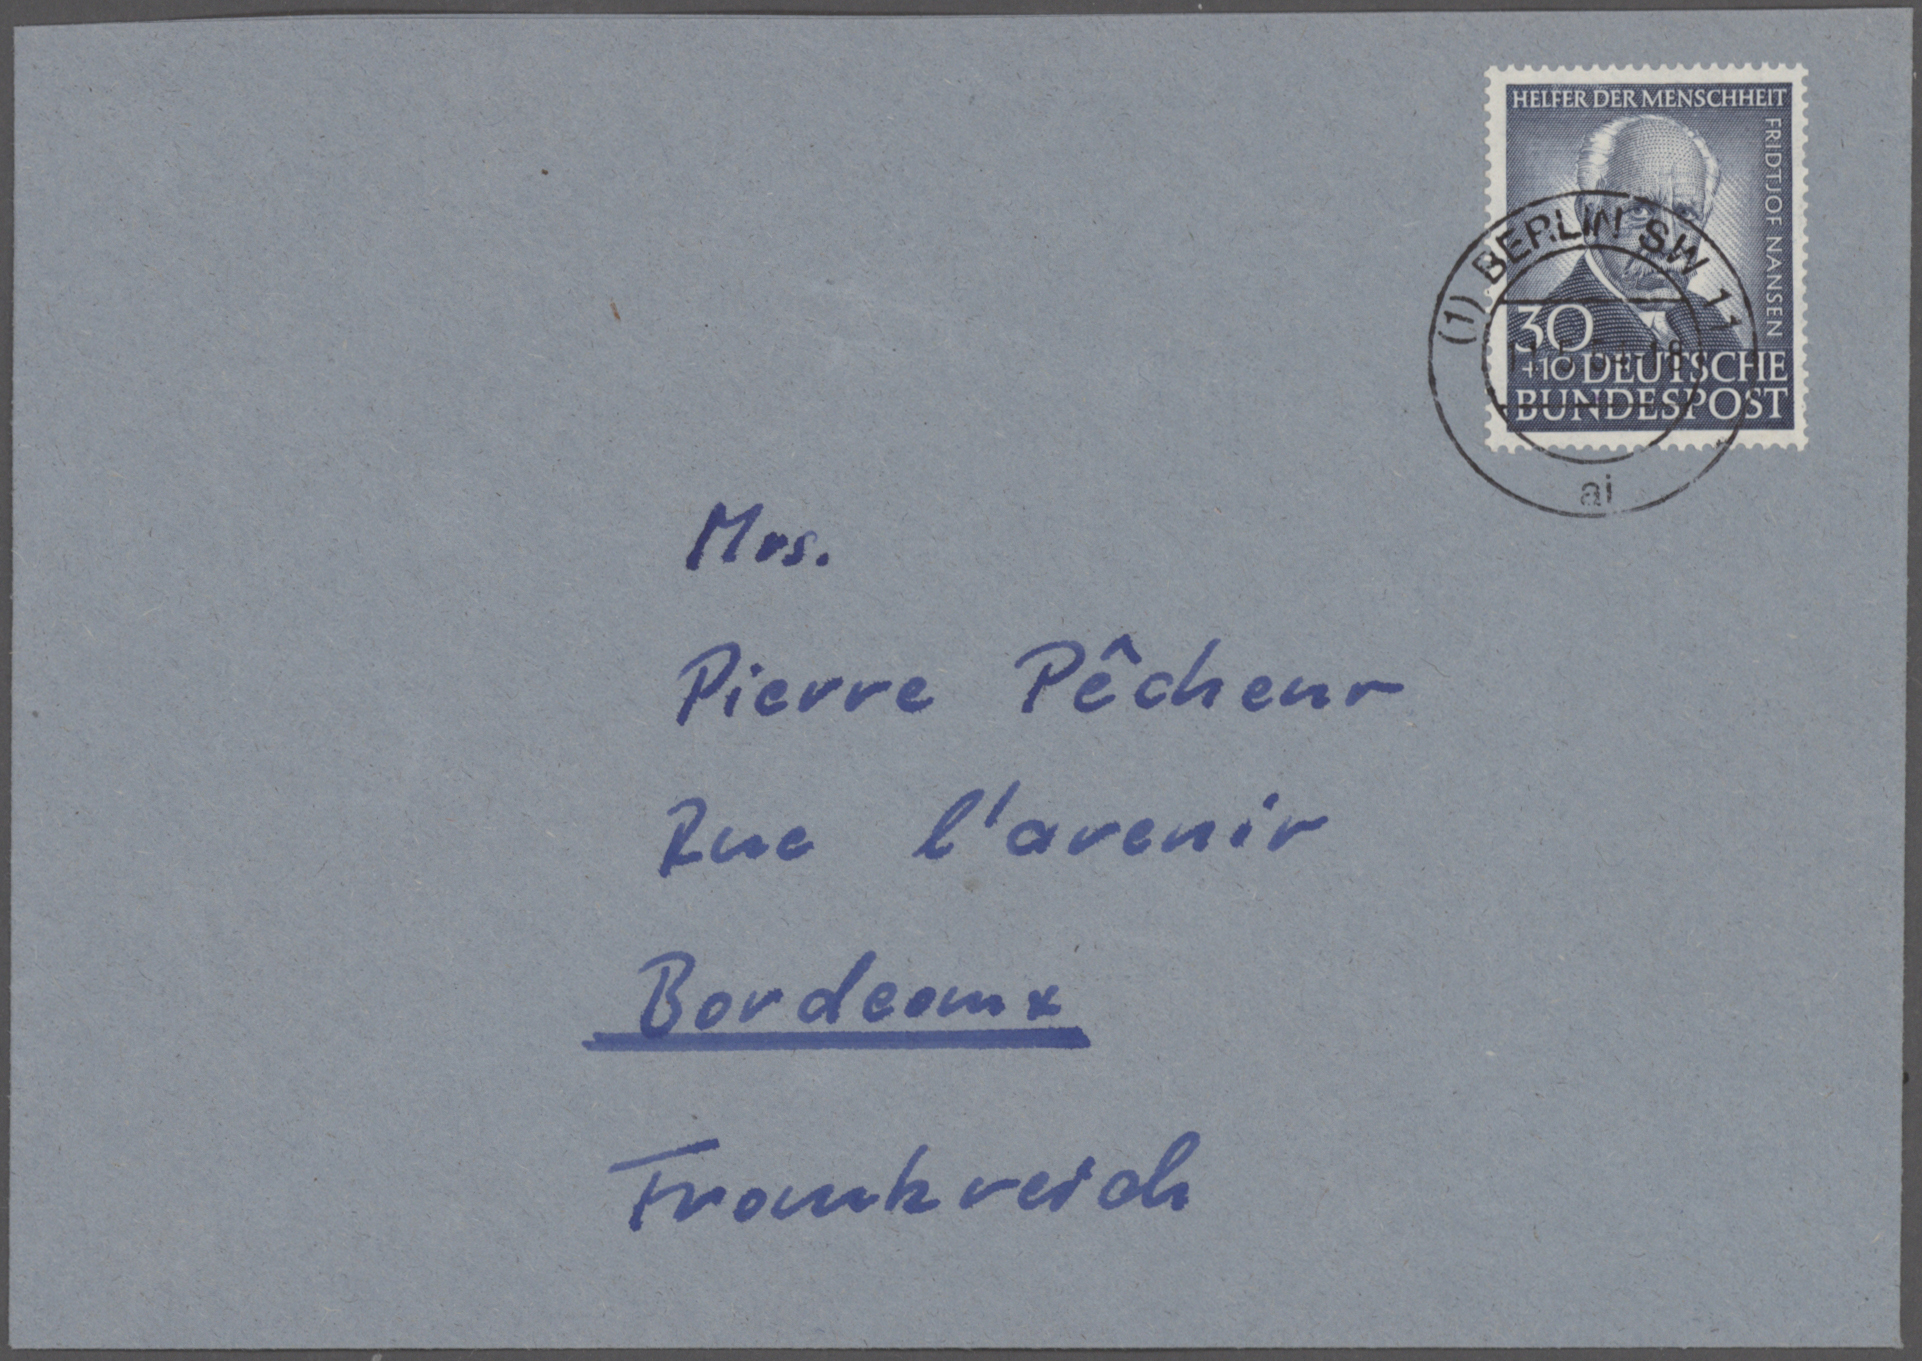 HELFER DER MENSCHHEIT
FRIDTJOF NANSEN
30
+10 DEUTSCHE
BUNDESPOST
(1) BERLIN SW 11
ai
Mrs.
Pierre Pêcheur
Rue l'avenir
Bordeaux
Frankreich